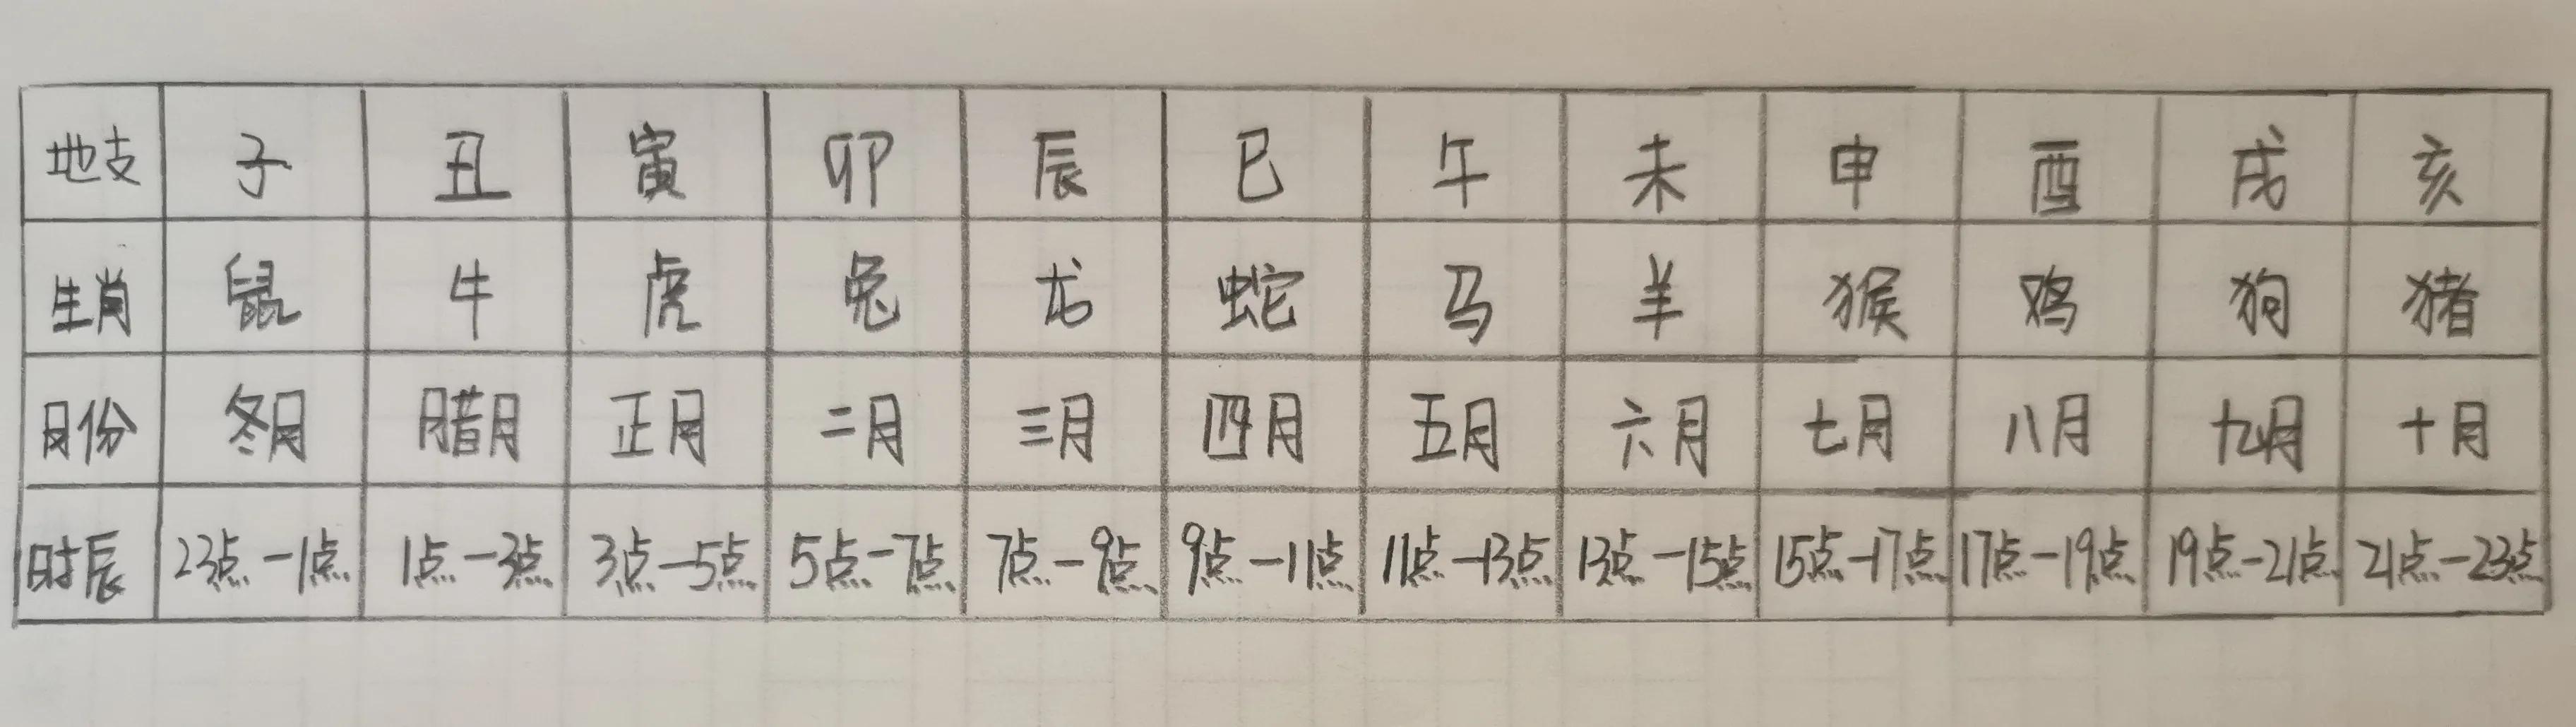 地支 子 丑 寅 卯 辰 巳 午 未 申 酉 戌 亥
生肖 鼠 牛 虎 兔 龙 蛇 马 羊 猴 鸡 狗 猪
月份 冬月 腊月 正月 二月 三月 四月 五月 六月 七月 八月 九月 十月
时辰 23点-1点 1点-3点 3点-5点 5点-7点 7点-9点 9点-11点 11点-13点 13点-15点 15点-17点 17点-19点 19点-21点 21点-23点